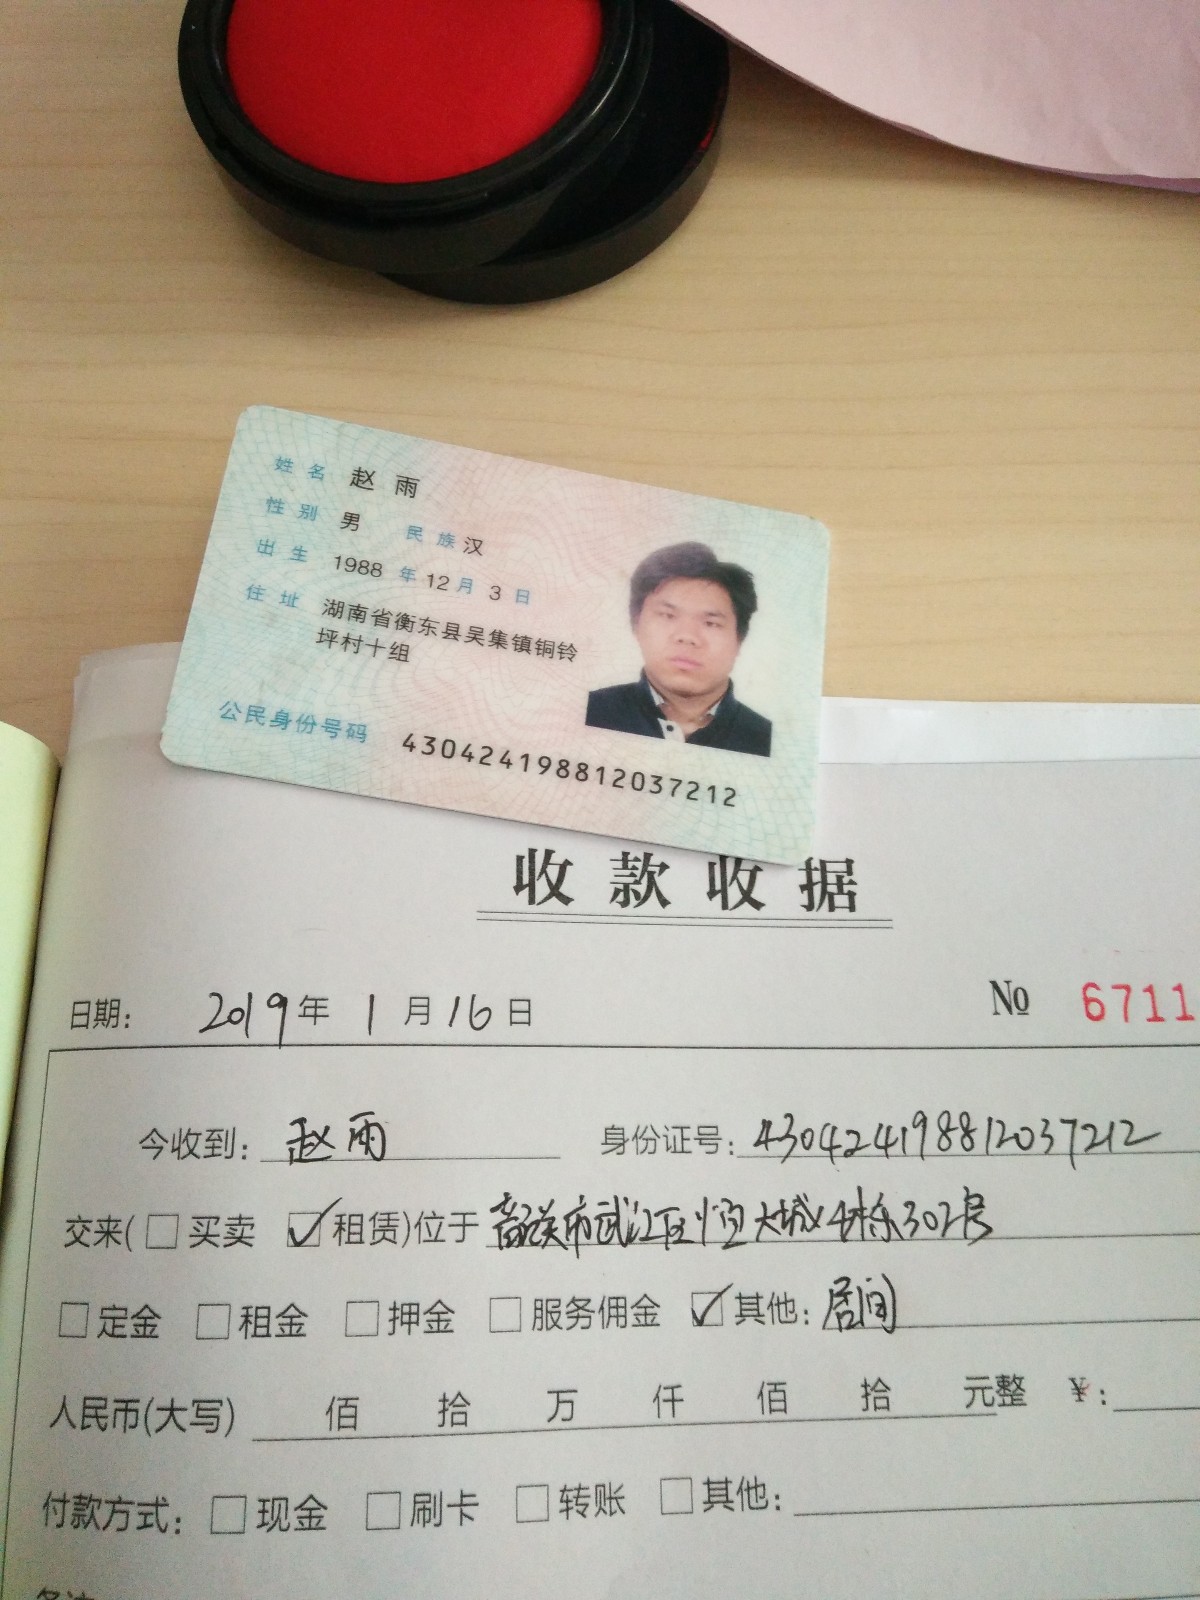 姓名 赵雨
性别 男 民族 汉
出生 1988年12月3日
住址 湖南省衡东县吴集镇铜铃
坪村十组
公民身份号码 430424198812037212
收款收据
日期: 2019年1月16日 No 6711
今收到: 赵雨 身份证号: 430424198812037212
交来(□买卖 ☑租赁)位于 韶关市武江区恒大城4栋302号
□定金 □租金 □押金 □服务佣金 ☑其他: 居间
人民币(大写) 佰 拾 万 仟 佰 拾 元整 ¥:
付款方式: □现金 □刷卡 □转账 □其他: